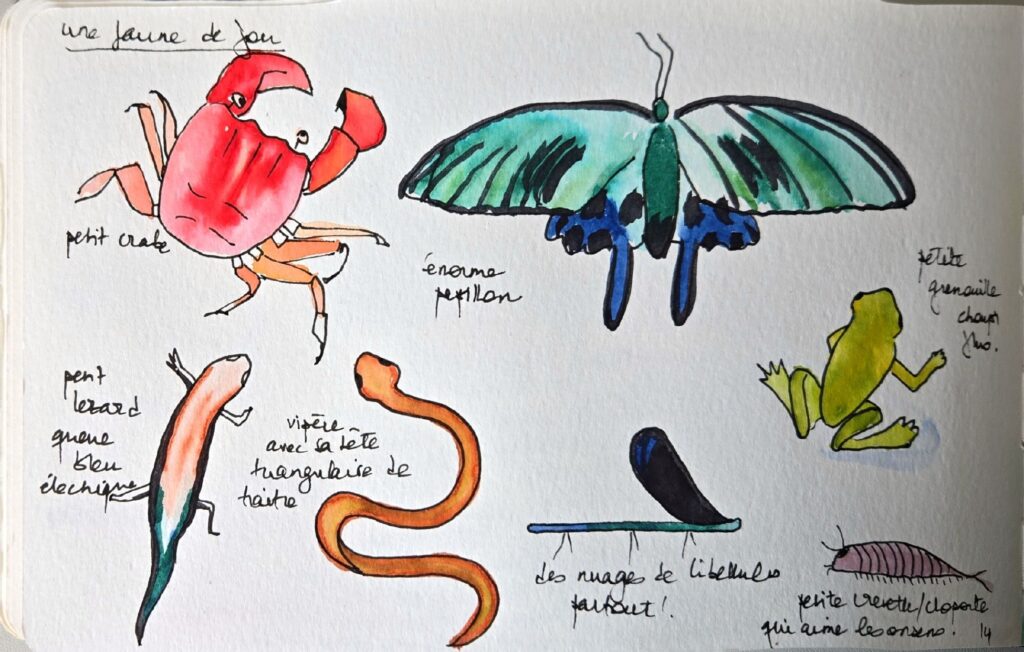 une faune de fou
petit crabe
énorme
papillon
petite
grenouille
fluo.
petit
lezard
queue
bleu
électrique
vipère -
avec sa tête
triangulaire de
traitre
des nuages de libellules
partout !
petite crevette/cloporte
qui aime les onsens. 14